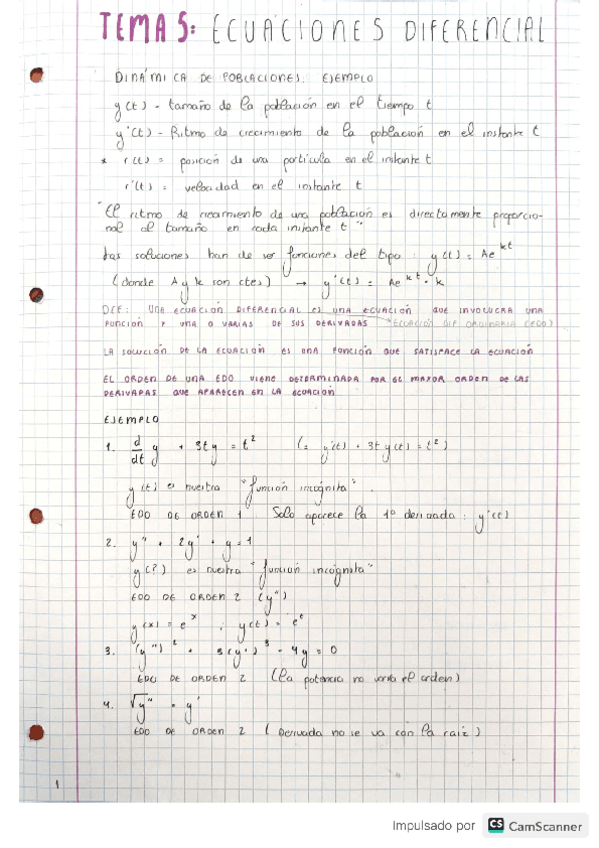 TEMA 5: ECUACIONES DIFERENCIAL
DINÁMICA DE POBLACIONES: EJEMPLO
y(t) - tamaño de la población en el tiempo t
y'(t) - Ritmo de crecimiento de la población en el instante t
* r(t) = posición de una partícula en el instante t
r'(t) = velocidad en el instante t
"El ritmo de crecimiento de una población es directamente proporcio-
nal al tamaño en cada instante t"
Las soluciones han de ser funciones del tipo: y(t) = Ae^kt
(donde A y k son ctes) → y'(t) = Ae^kt · k
DEF: UNA ECUACIÓN DIFERENCIAL ES UNA ECUACIÓN QUE INVOLUCRA UNA
FUNCIÓN Y UNA O VARIAS DE SUS DERIVADAS "ECUACIÓN DIF ORDINARIA (EDO)
LA SOLUCIÓN DE LA ECUACIÓN ES UNA FUNCIÓN QUE SATISFACE LA ECUACIÓN
EL ORDEN DE UNA EDO VIENE DETERMINADA POR EL MAYOR ORDEN DE LAS
DERIVADAS QUE APARECEN EN LA ECUACIÓN
EJEMPLO
1. d/dt y + 3ty = t² (= y'(t) + 3t y(t) = t²)
y(t) es nuestra "función incógnita".
EDO DE ORDEN 1. Solo aparece la 1º derivada: y'(t)
2. y'' + 2y' + y = 1
y(?) es nuestra "función incógnita"
EDO DE ORDEN 2 (y'')
y(x) = e^x ; y(t) = e^t
3. (y'')² + 3(y')³ - 4y = 0
EDO DE ORDEN 2 (la potencia no varía el orden)
4. √y'' = y'
EDO DE ORDEN 2 (Derivada no se va con la raíz)
1
Impulsado por CS CamScanner